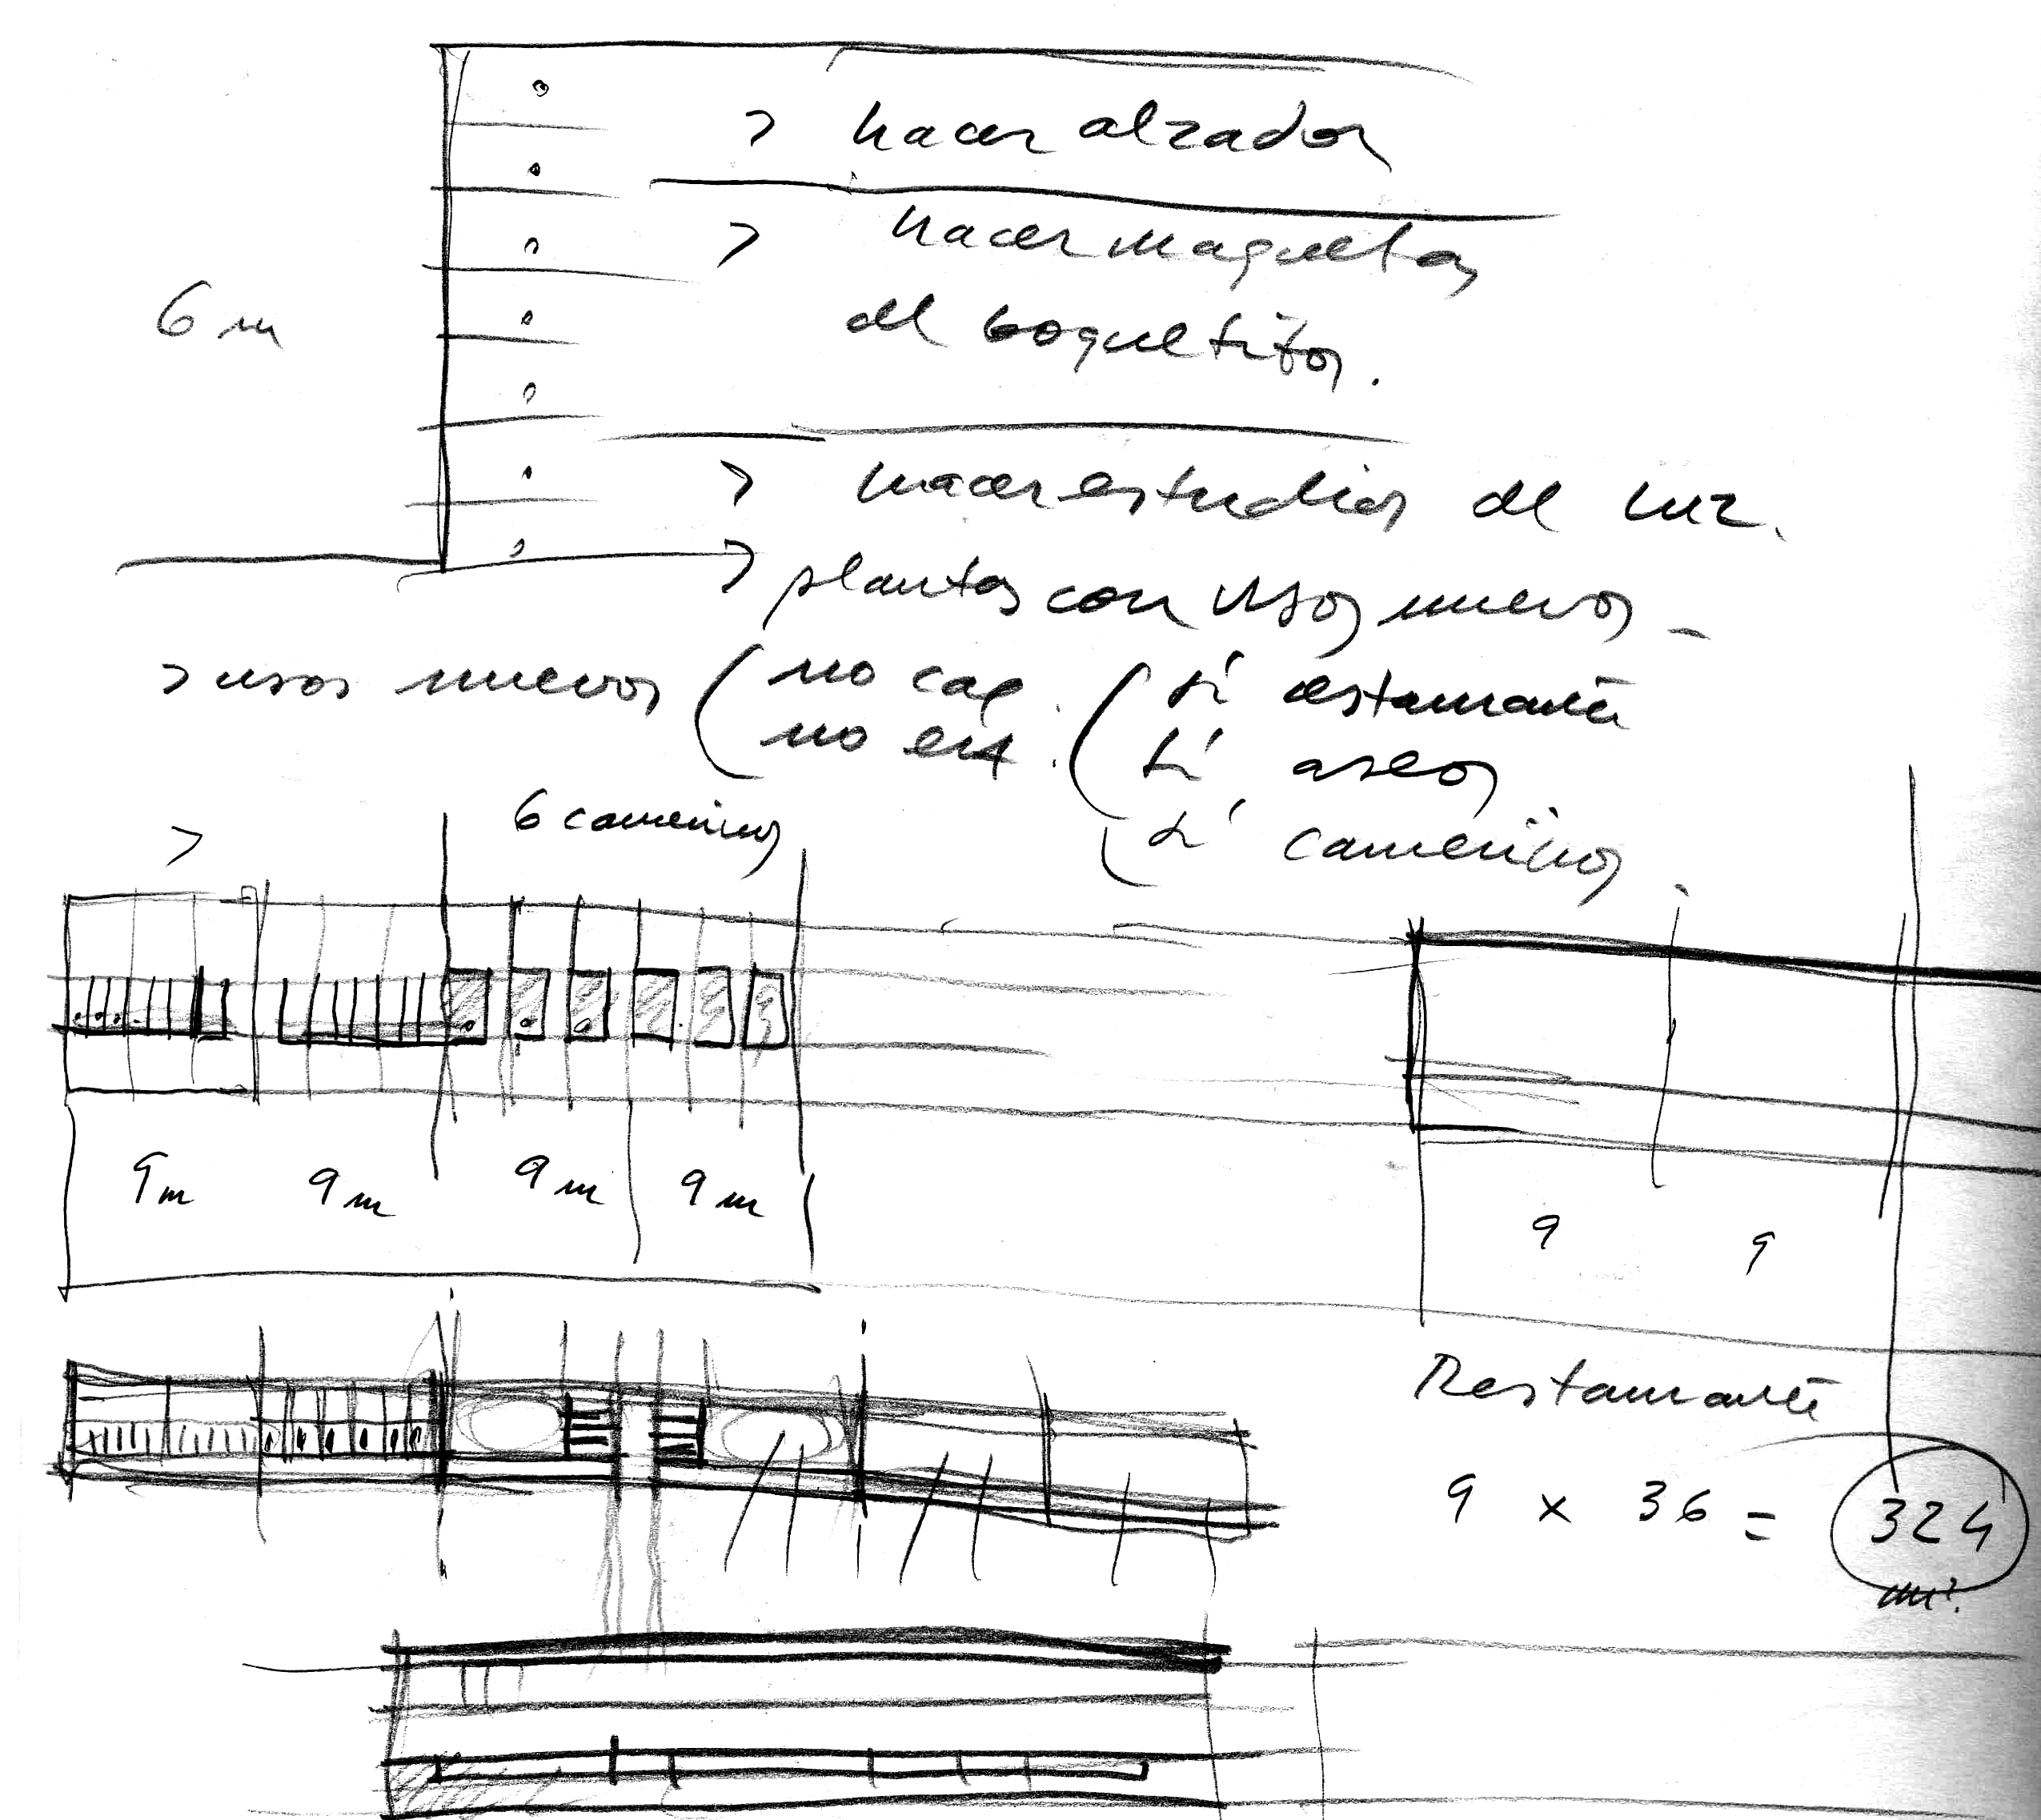 > hacer alzados
> hacer maquetas
de boquetitos.
6 m
> hacer estudios de luz.
> plantas con usos nuevos
> usos nuevos ( no ( sí restaurante
no sí aseos
sí camerinos.
>
6 camerinos
9m 9m 9m 9m
9 9
Restaurante
9 x 36 = 324
m²